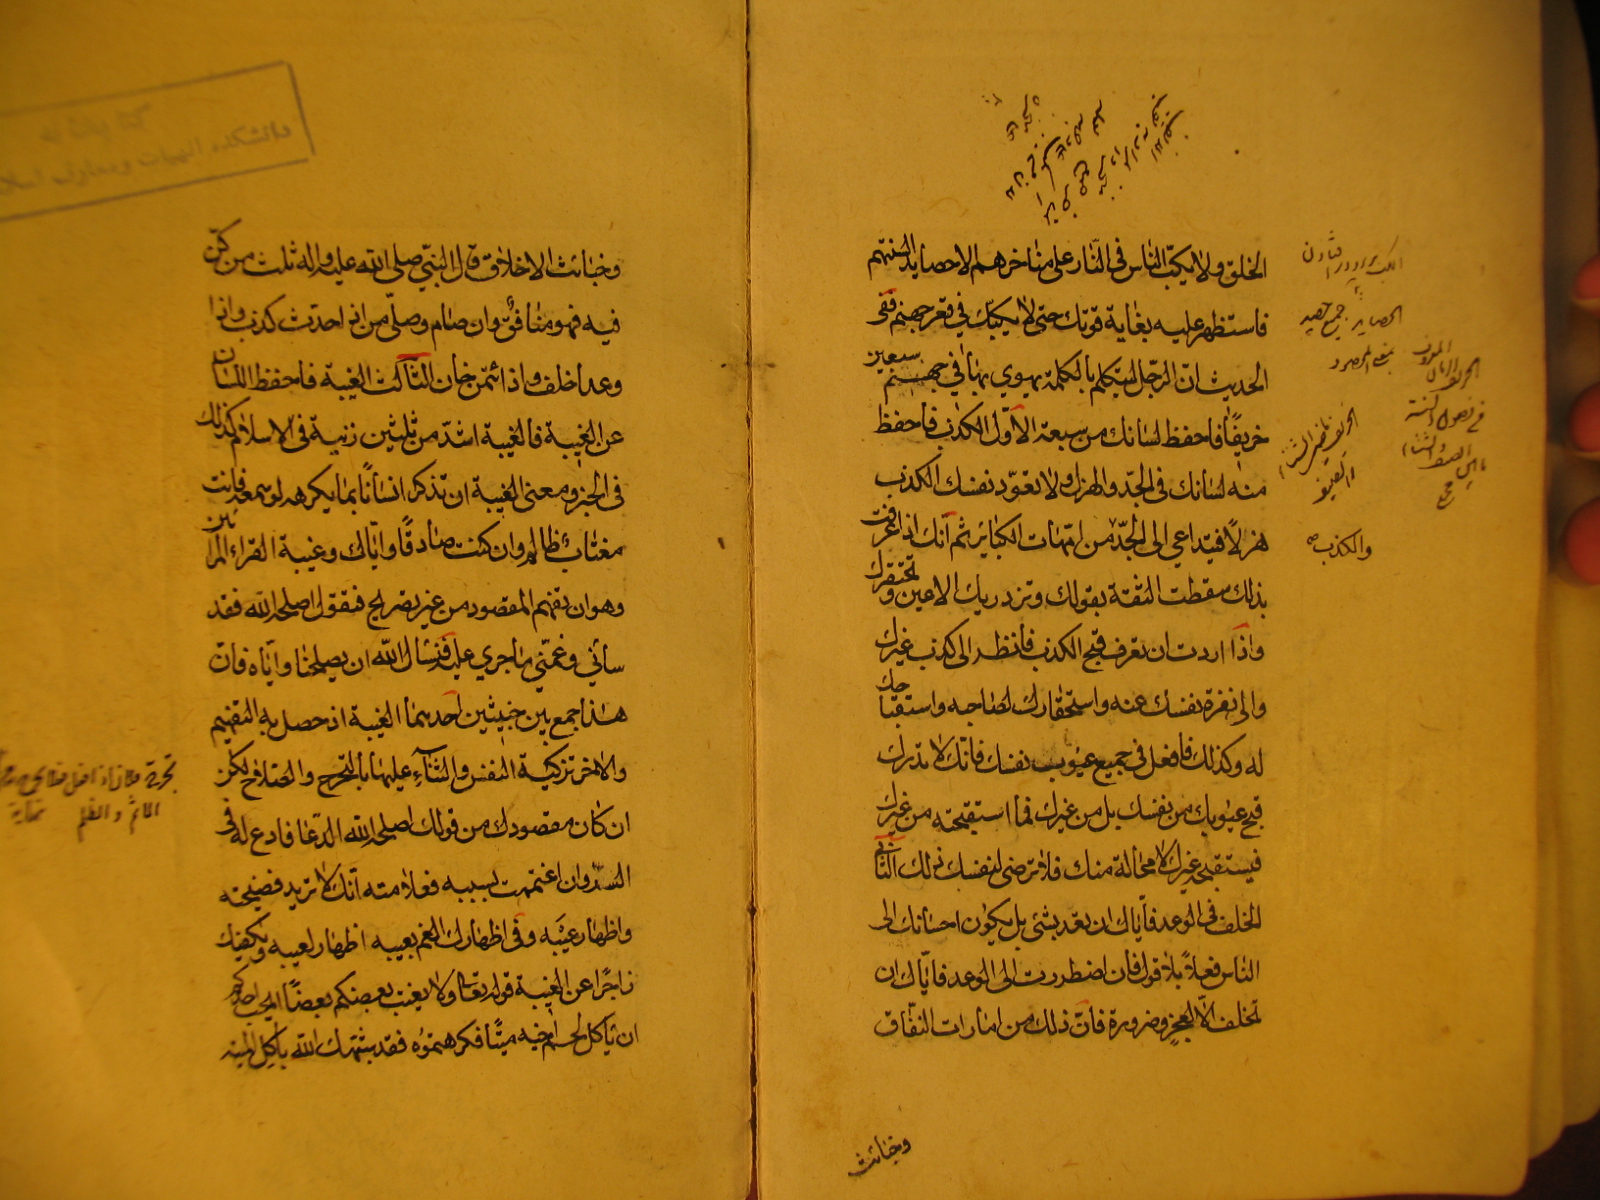 الخلق ولا يكبّ الناس في النّار على مناخرهم الا حصايد السنتهم
فاستظهر عليه بغاية قوتك حتى لا يكبّك في قعر جهنم ففى
الحديث انّ الرّجل ليتكلم بالكلمة يهوي بها في جهنم سبعين
خريفًا فاحفظ لسانك من سبعة الاوّل الكذب فاحفظ
منه لسانك في الجدّ والهزل ولا تعوّد نفسك الكذب
هزلاً فيتداعي الى الجدّ من امّهات الكبائر ثم انّك اذا عرفت
بذلك سقطت الثقة بقولك وتزدريك الاعين وتحتقرك
واذا اردت ان تعرف قبح الكذب فانظر الى كذب غيرك
والى نفرة نفسك عنه واستحقارك لصاحبه واستقباحك
له وكذلك فافعل في جميع عيوب نفسك فانّك لا تدرك
قبح عيوبك من نفسك بل من غيرك فما استقبحته من غيرك
فيستقبحه غيرك لا محالة منك فلا ترضى لنفسك ذلك الثاني
الخلف في الوعد فايّاك ان تعد بشئ بل يكون احسانك الى
الناس فعلاً بلا قول فان اضطررت الى الوعد فايّاك ان
تخلف الّا لعجز وضرورة فانّ ذلك من امارات النفاق
وخبائث
الحصايد جمع حصيد
بمعنى المحصود
والكذب
وخبائث الاخلاق قال النبيّ صلى الله عليه واله ثلث من كنّ
فيه فهو منافق وان صام وصلّى من اذا حدث كذب واذا
وعد اخلف واذا ائتمن خان الثالث الغيبة فاحفظ اللسان
عن الغيبة فالغيبة اشدّ من ثلثين زنية في الاسلام كذلك
في الخبر ومعنى الغيبة ان تذكر انسانًا بما يكرهه لو سمعه فانت
مغتاب ظالم وان كنت صادقًا واياك وغيبة القراء المرائين
وهو ان تفهم المقصود من غير تصريح فتقول اصلحه الله فقد
سائني وغمّني ما جري عليه فنسال الله ان يصلحنا وايّاه فانّ
هذا جمع بين خبيثين احدهما الغيبة اذ حصل به التفهيم
والاخر تزكية النفس والثناء عليها بالتحرج والصلاح لكن
ان كان مقصودك من قولك اصلحه الله الدّعا فادع له فى
السّر وان اغتممت بسببه فعلامته انّك لا تريد فضيحته
واظهار عيبه وفى اظهارك الغم بعيبه اظهار لعيبه ويكفيك
زاجرًا عن الغيبة قوله تعالى ولا يغتب بعضكم بعضًا ايحب احدكم
ان ياكل لحم اخيه ميتًا فكرهتموه فقد شبّهك الله باكل الميته
الاثم والظلم نهاية
كتابخانه
دانشكده الهيات ومعارف اسلامى